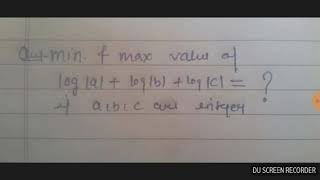 Que. min. & max value of
log|a| + log|b| + log|c| = ?
if a,b,c are integer
DU SCREEN RECORDER